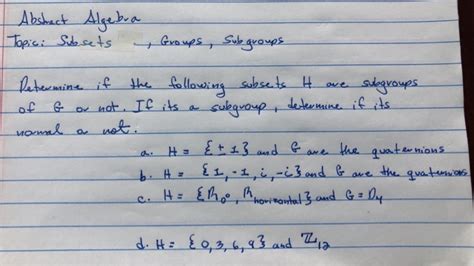 Abstract Algebra
Topic: Subsets , Groups, Subgroups
Determine if the following subsets H are subgroups
of G or not. If its a subgroup, determine if its
normal or not.
a. H = {± 1} and G are the quaternions
b. H = {1, -1, i, -i} and G are the quaternions
c. H = {R₀°, R horizontal} and G = D₄
d. H = {0, 3, 6, 9} and ℤ₁₂